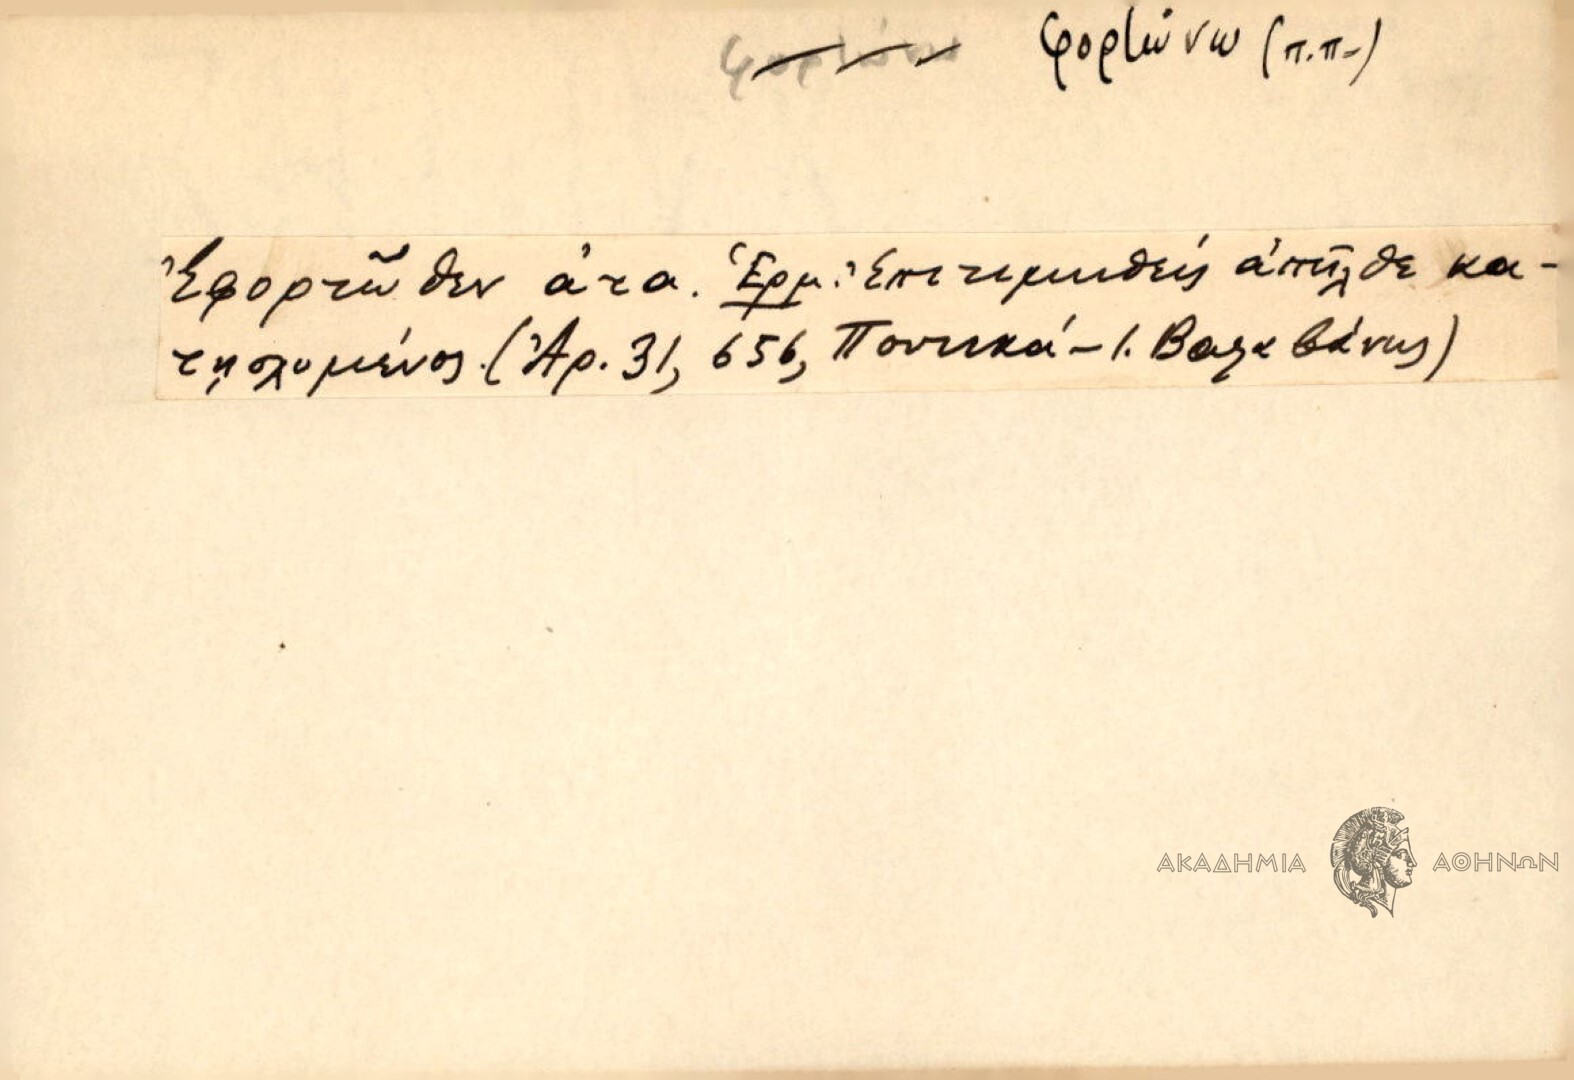 φορτώνω (π.π-)
Ἐφορτῶθεν ἀτα. Ἑρμ. Ἐπιτιμηθείς ἀπῆλθε κα-
τῃσχυμένος. (Ἀρ. 31, 656, Ποντικά - Ι. Βαλαβάνης)
ΑΚΑΔΗΜΙΑ ΑΘΗΝΩΝ